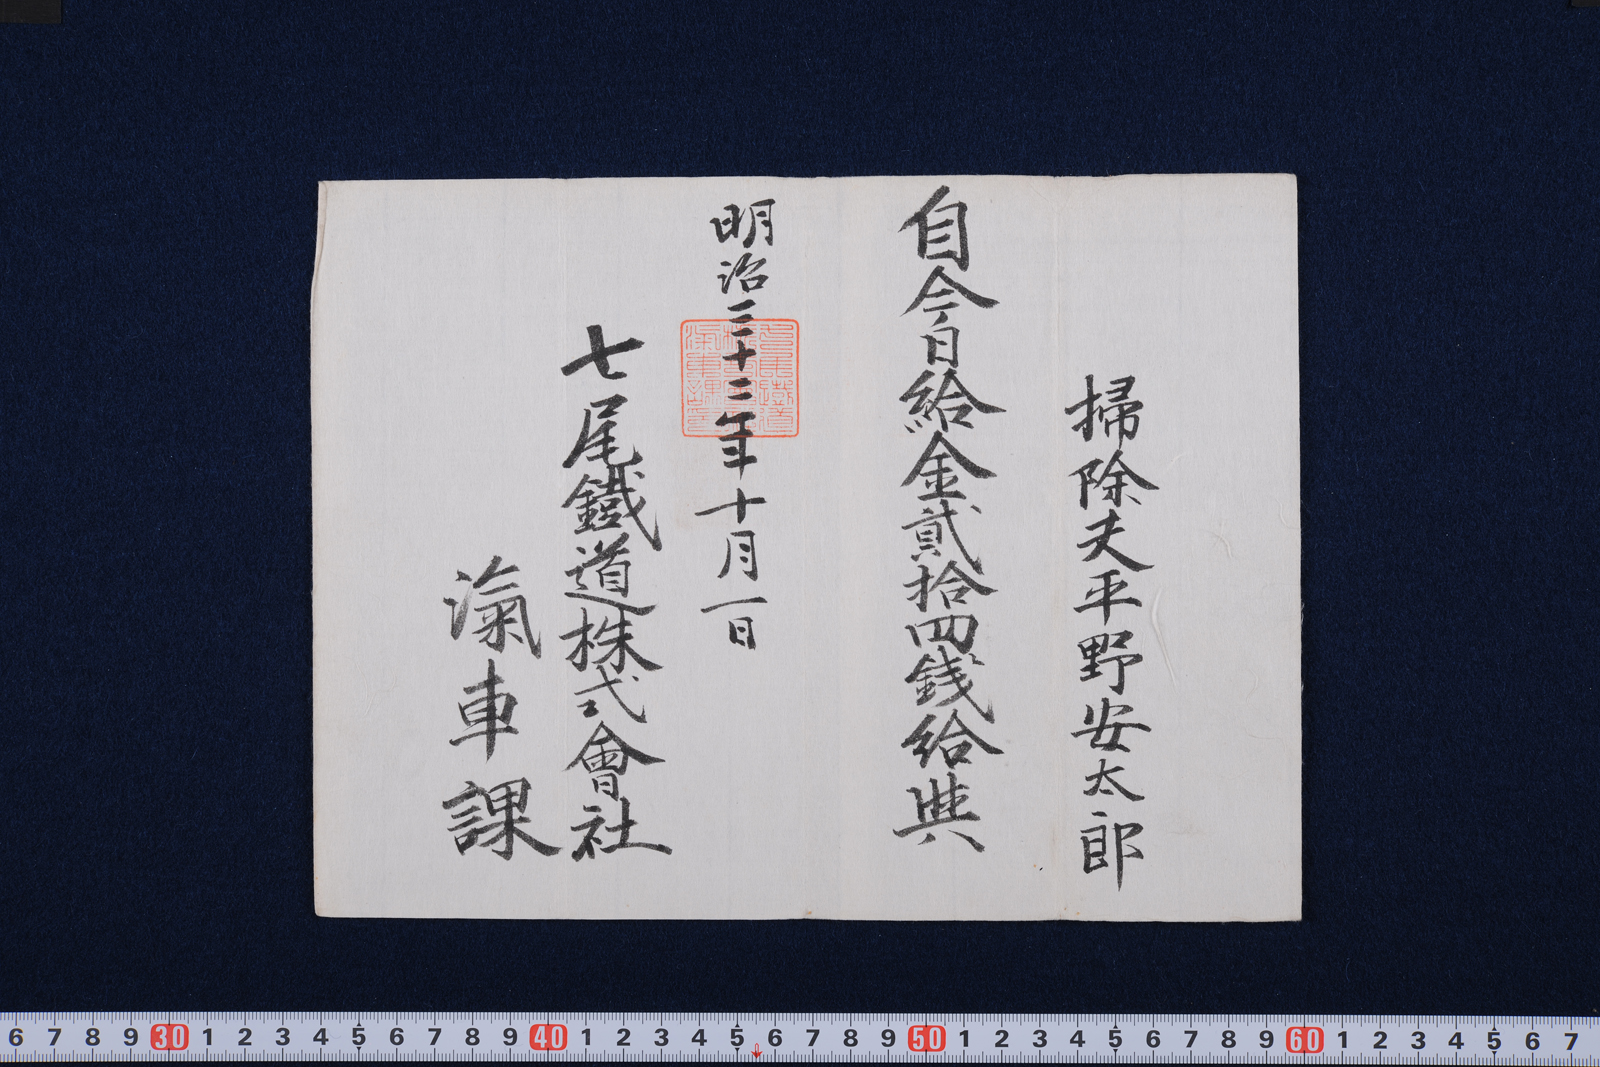 掃除夫平野安太郎
自今日給金貳拾四銭給與
明治三十二年十月一日
七尾鐵道株式會社
滊車課
6 7 8 9 30 1 2 3 4 5 6 7 8 9 40 1 2 3 4 5 6 7 8 9 50 1 2 3 4 5 6 7 8 9 60 1 2 3 4 5 6 7